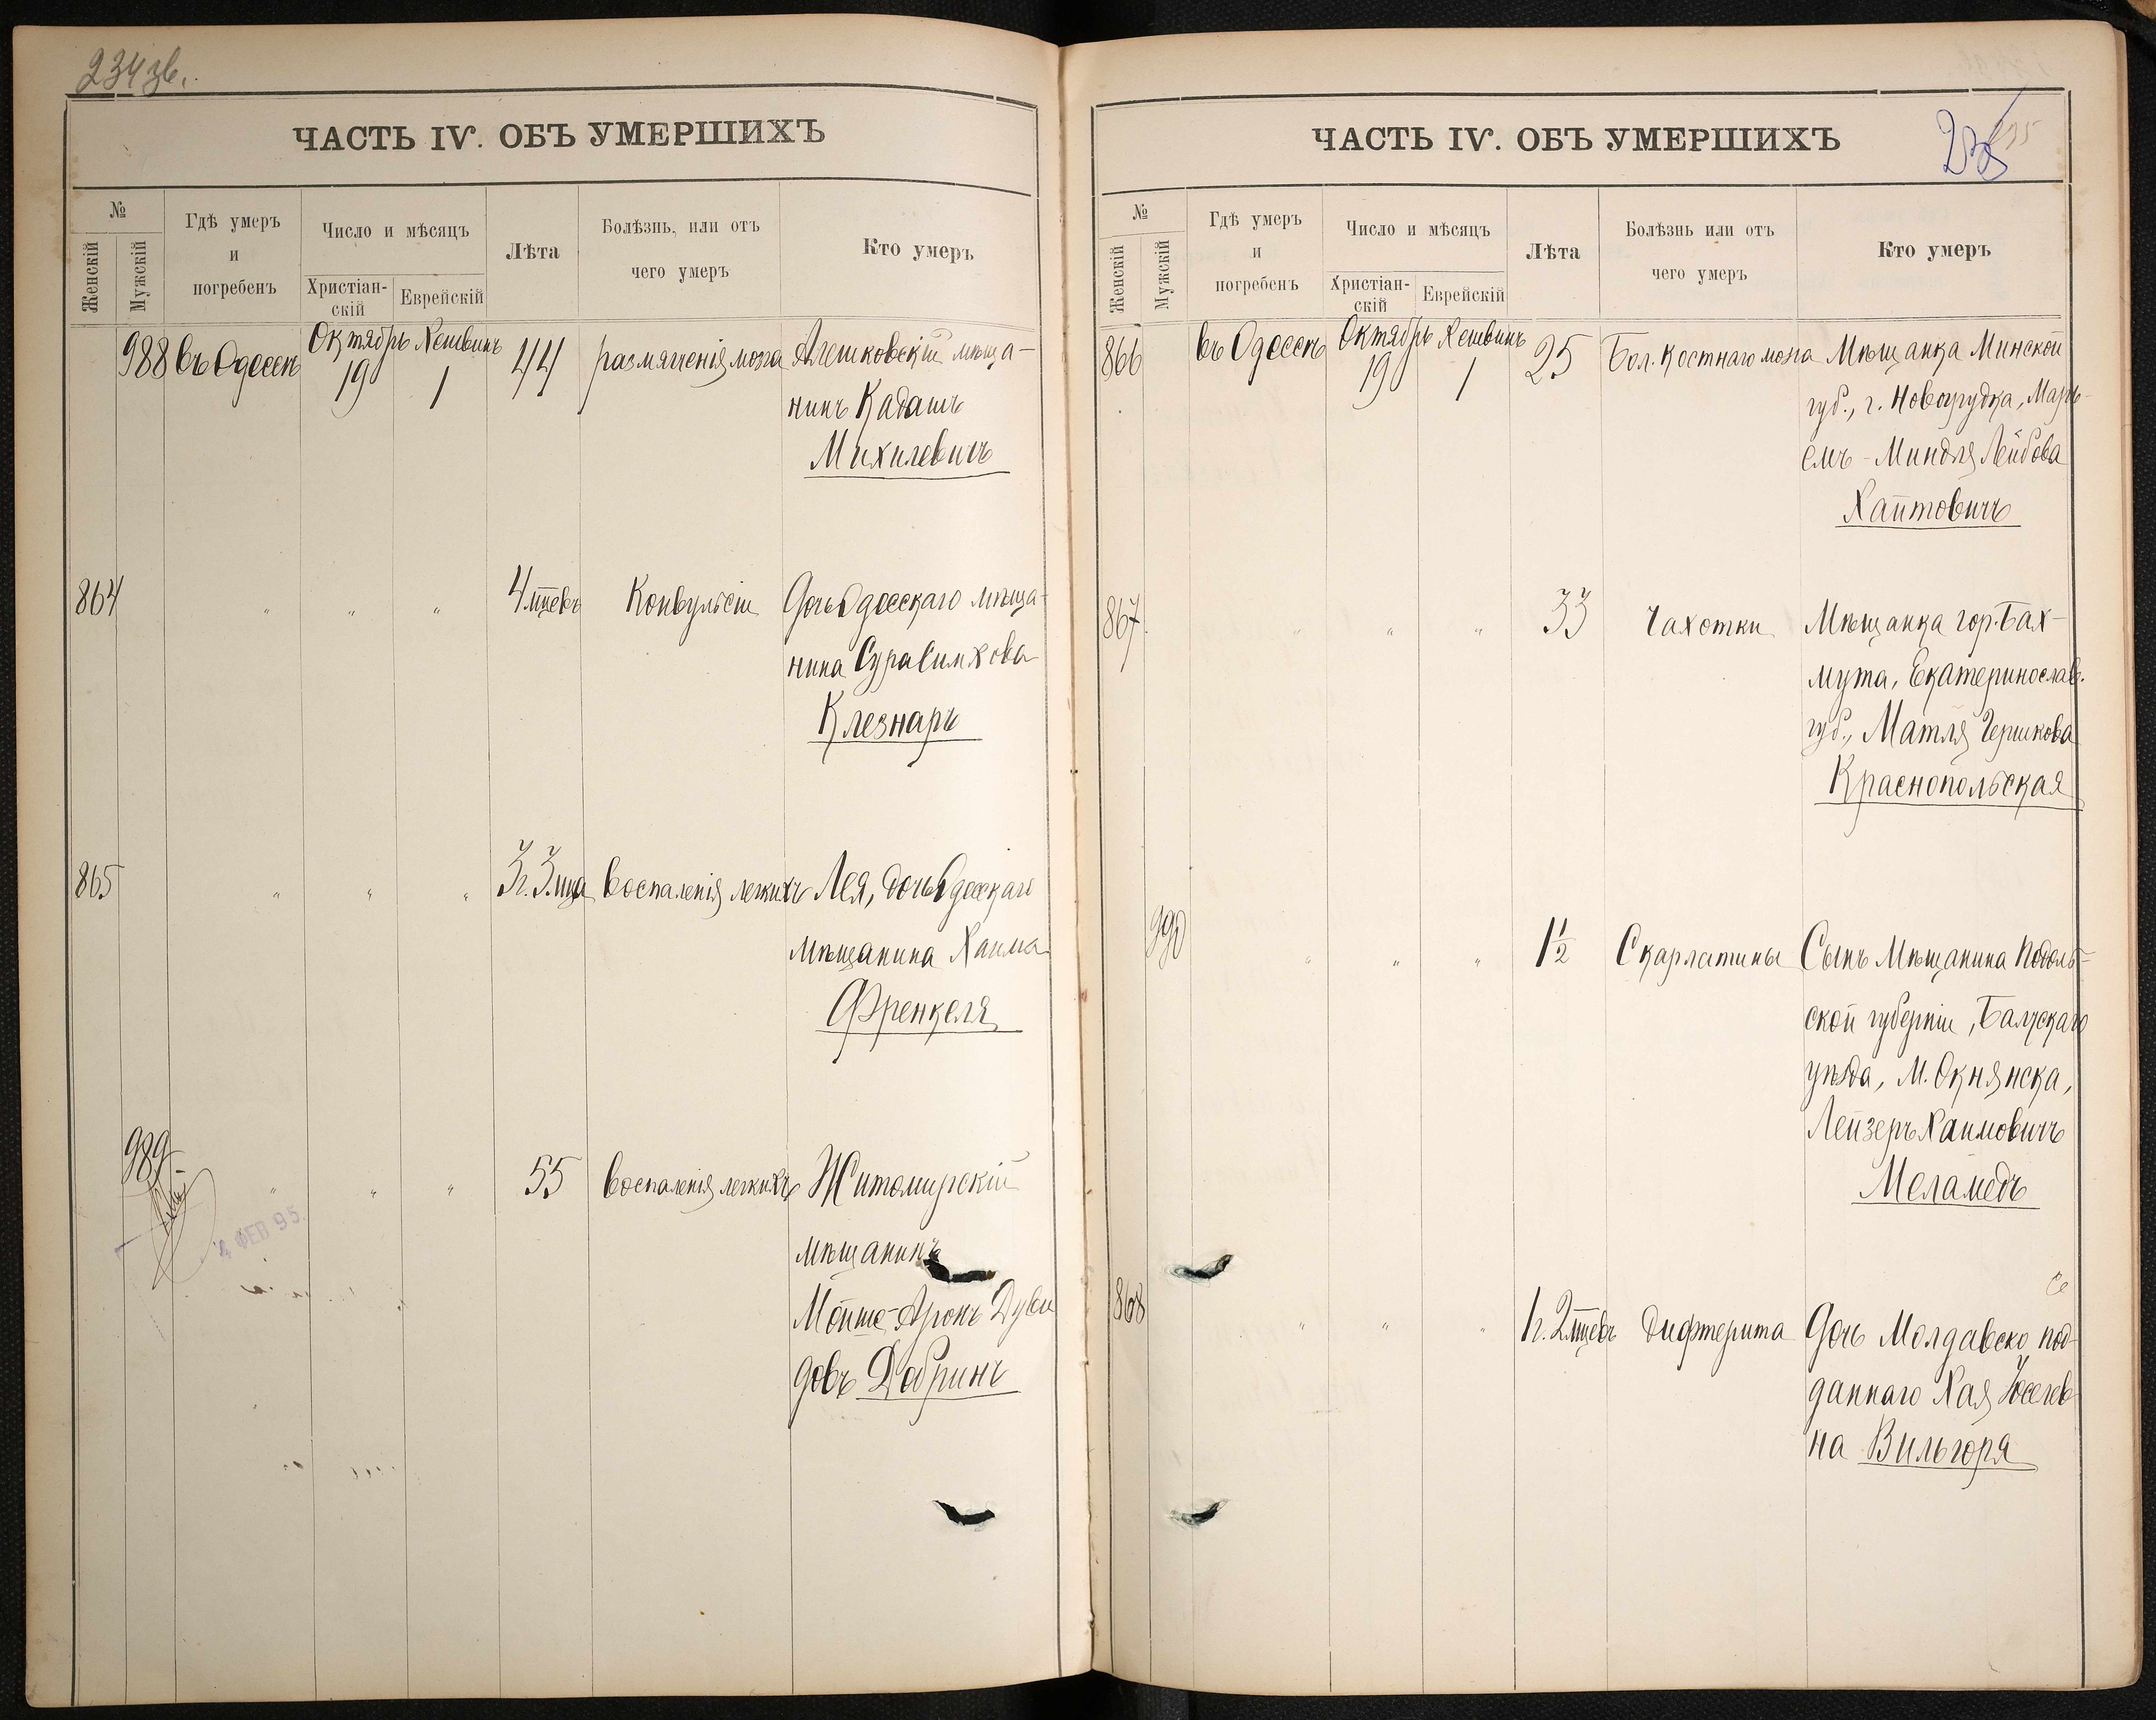 234 зв.
ЧАСТЬ IV. ОБЪ УМЕРШИХЪ
№
Женскій
Мужскій
Гдѣ умеръ
и
погребенъ
Число и мѣсяцъ
Христіан-
скій
Еврейскій
Лѣта
Болѣзнь, или отъ
чего умеръ
Кто умеръ
988 въ Одессѣ Октябрь 19 Хешвинъ 1 44 размягченія мозга Алешковскій мѣща-
нинъ Кадашъ
Михилевичъ
864 " " " 4 мцевъ Конвульсіи Дочь Одесскаго мѣща-
нина Сура Симхова
Клезнаръ
865 " " " 3 г. 3 мца воспаленія легкихъ Лея, дочь Одесскаго
мѣщанина Хаима
Френкеля
989 " " " 55 воспаленія легкихъ Житомирскій
мѣщанинъ
Мойше-Аронъ Дуви
довъ Добринъ
4 ФЕВ 95
ЧАСТЬ IV. ОБЪ УМЕРШИХЪ
235
№
Женскій
Мужскій
Гдѣ умеръ
и
погребенъ
Число и мѣсяцъ
Христіан-
скій
Еврейскій
Лѣта
Болѣзнь или отъ
чего умеръ
Кто умеръ
866 въ Одессѣ Октябрь 19 Хешвинъ 1 25 Бол. Костнаго мозга Мѣщанка Минской
губ., г. Новогрудка, Марь-
емъ-Миндля Лейбова
Хайтовичъ
867 " " " 33 Чахотки Мѣщанка гор. Бах-
мута, Екатеринослав.
губ., Матля Гершкова
Краснопольская
990 " " " 1 1/2 Скарлатины Сынъ Мѣщанина Подоль-
ской губерніи, Балтскаго
уѣзда, М. Окнянска,
Лейзеръ Хаимовичъ
Меламедъ
868 " " " 1 г. 2 мцевъ Дифтерита Дочь Молдавско под-
даннаго Хая Іосегев-
на Вильгоря